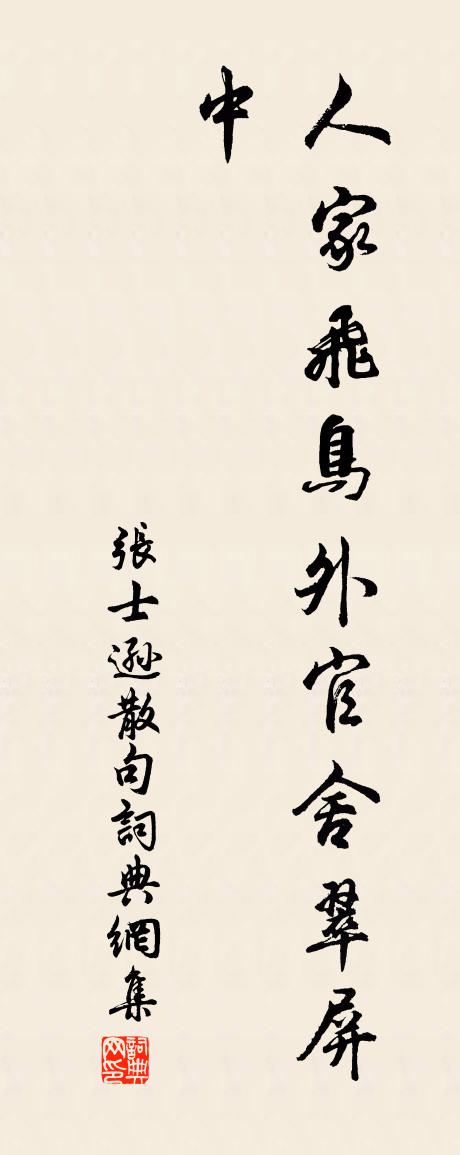 人家飛鳥外官舍翠屏
中
張士遜散句詞典網集
詞典网印